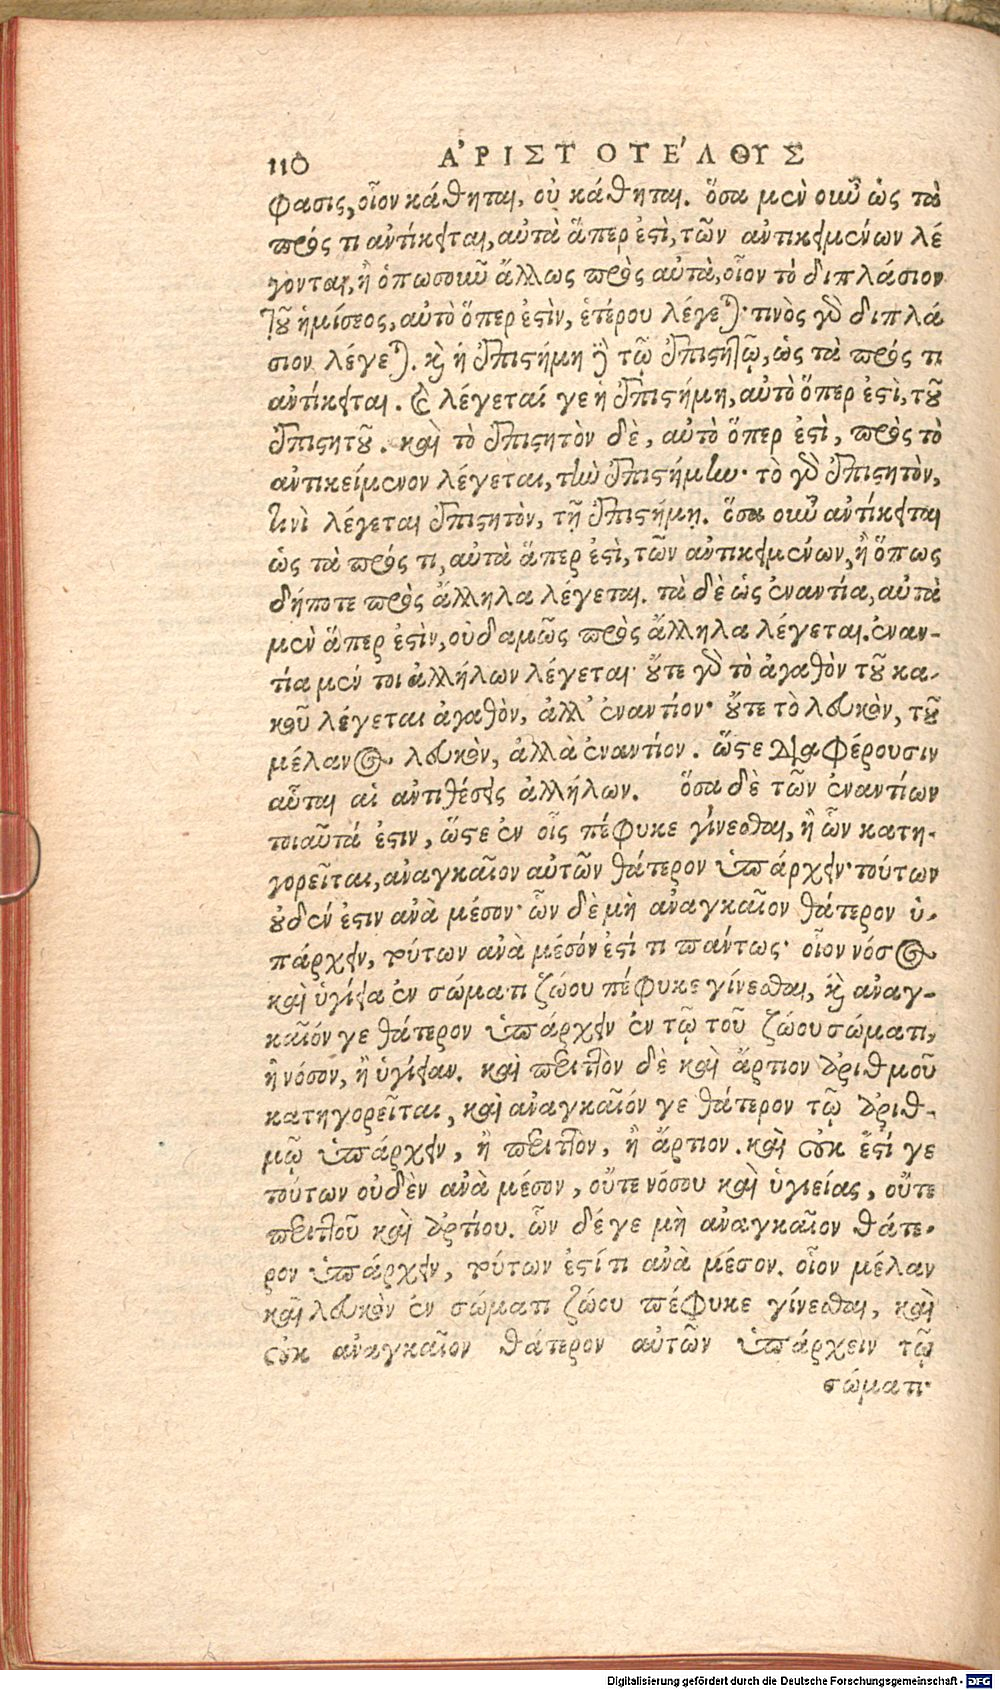 110 ΑʹΡΙΣΤΟΤΕʹΛΟΥΣ
φασις, οἷον κάθηται, οὐ κάθηται. ὅσα μὲν οὖν ὡς τὰ
πρός τι ἀντίκειται, αὐτὰ ἅπερ ἐστὶ, τῶν ἀντικειμένων λέ
γονται, ἢ ὁπωσοῦν ἄλλως πρὸς αὐτὰ, οἷον τὸ διπλάσιον
τοῦ ἡμίσεος, αὐτὸ ὅπερ ἐστὶν, ἑτέρου λέγεται· τινὸς γὰρ διπλά
σιον λέγεται. καὶ ἡ ἐπιστήμη δὲ τῷ ἐπιστητῷ, ὡς τὰ πρός τι
ἀντίκειται. καὶ λέγεταί γε ἡ ἐπιστήμη, αὐτὸ ὅπερ ἐστὶ, τοῦ
ἐπιστητοῦ. καὶ τὸ ἐπιστητὸν δὲ, αὐτὸ ὅπερ ἐστὶ, πρὸς τὸ
ἀντικείμενον λέγεται, τὴν ἐπιστήμην· τὸ γὰρ ἐπιστητὸν,
τινὶ λέγεται ἐπιστητὸν, τῇ ἐπιστήμῃ. ὅσα οὖν ἀντίκειται
ὡς τὰ πρός τι, αὐτὰ ἅπερ ἐστὶ, τῶν ἀντικειμένων, ἢ ὅπως
δήποτε πρὸς ἄλληλα λέγεται. τὰ δὲ ὡς ἐναντία, αὐτὰ
μὲν ἅπερ ἐστὶν, οὐδαμῶς πρὸς ἄλληλα λέγεται. ἐναν-
τία μέν τοι ἀλλήλων λέγεται· οὔτε γὰρ τὸ ἀγαθὸν τοῦ κα-
κοῦ λέγεται ἀγαθὸν, ἀλλ' ἐναντίον· οὔτε τὸ λευκὸν, τοῦ
μέλανος λευκὸν, ἀλλὰ ἐναντίον. ὥστε διαφέρουσιν
αὗται αἱ ἀντιθέσεις ἀλλήλων. ὅσα δὲ τῶν ἐναντίων
τοιαῦτά ἐστιν, ὥστε ἐν οἷς πέφυκε γίνεσθαι, ἢ ὧν κατη-
γορεῖται, ἀναγκαῖον αὐτῶν θάτερον ὑπάρχειν· τούτων
οὐδέν ἐστιν ἀνὰ μέσον· ὧν δὲ μὴ ἀναγκαῖον θάτερον ὑ-
πάρχειν, τούτων ἀνὰ μέσόν ἐστί τι πάντως· οἷον νόσος
καὶ ὑγίεια ἐν σώματι ζώου πέφυκε γίνεσθαι, καὶ ἀναγ-
καῖόν γε θάτερον ὑπάρχειν ἐν τῷ τοῦ ζώου σώματι,
ἢ νόσον, ἢ ὑγίειαν. καὶ περιττὸν δὲ καὶ ἄρτιον ἀριθμοῦ
κατηγορεῖται, καὶ ἀναγκαῖόν γε θάτερον τῷ ἀριθ-
μῷ ὑπάρχειν, ἢ περιττὸν, ἢ ἄρτιον. καὶ οὐκ ἔστί γε
τούτων οὐδὲν ἀνὰ μέσον, οὔτε νόσου καὶ ὑγιείας, οὔτε
περιττοῦ καὶ ἀρτίου. ὧν δέ γε μὴ ἀναγκαῖον θάτε-
ρον ὑπάρχειν, τούτων ἐστί τι ἀνὰ μέσον. οἷον μέλαν
καὶ λευκὸν ἐν σώματι ζώου πέφυκε γίνεσθαι, καὶ
οὐκ ἀναγκαῖον θάτερον αὐτῶν ὑπάρχειν τῷ
σώματι·
Digitalisierung gefördert durch die Deutsche Forschungsgemeinschaft - DFG